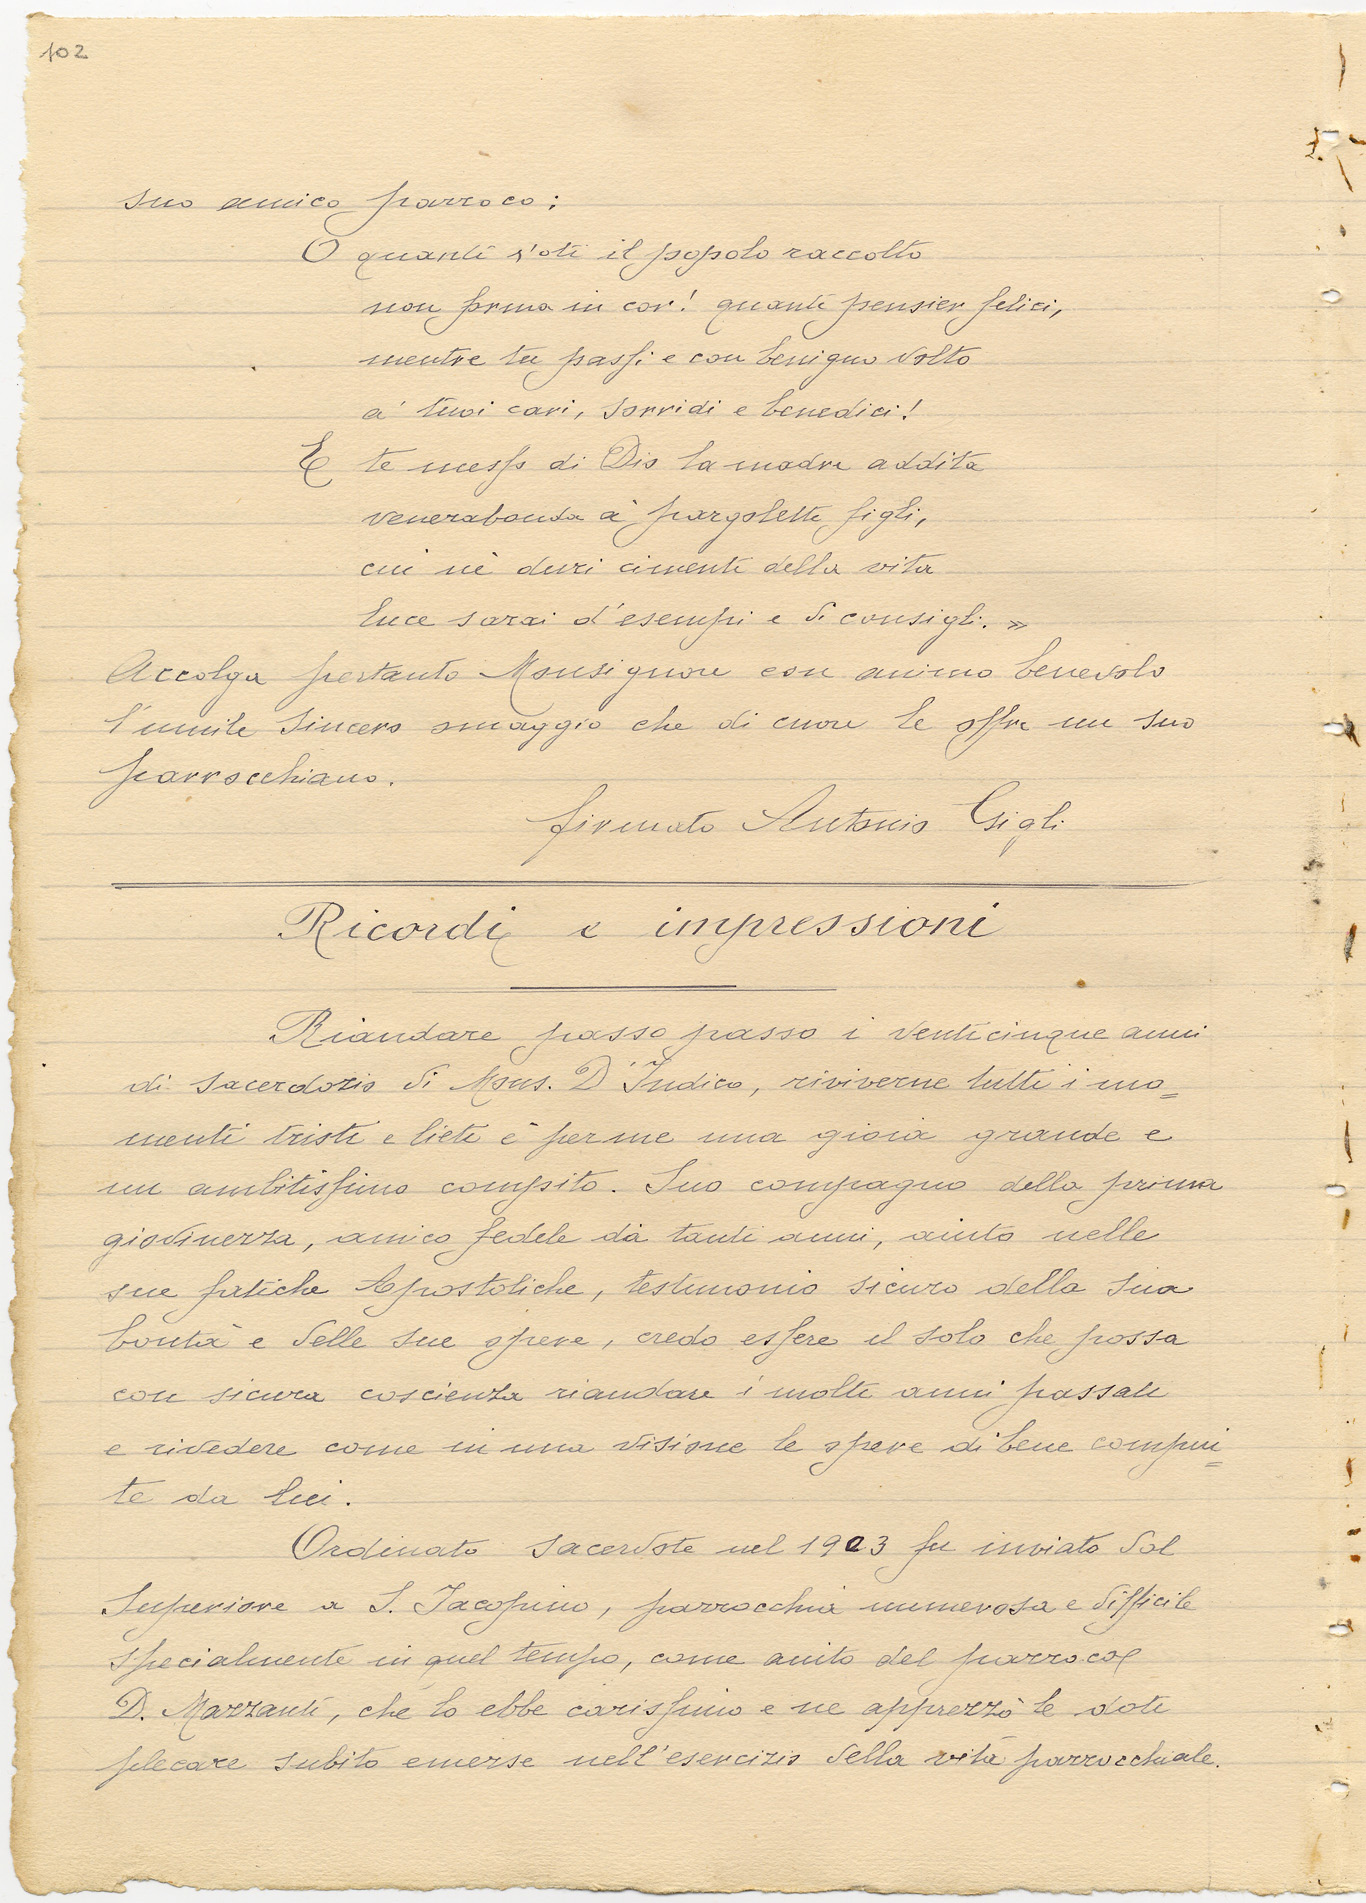 102
suo amico parroco:
O quanti voti il popolo raccolto
non forma in cor! quanti pensier felici,
mentre tu passi e con benigno volto
a' tuoi cari, sorridi e benedici!
E te messo di Dio la madre addita
venerabonda a' pargoletti figli,
cui nè duri cimenti della vita
luce sarai d'esempi e di consigli. »
Accolga pertanto Monsignore con animo benevolo
l'umile sincero omaggio che di cuore le offre un suo
parrocchiano.
firmato Antonio Gigli
Ricordi e impressioni
Riandare passo passo i venticinque anni
di sacerdozio di Mons. D'Indico, riviverne tutti i mo=
menti tristi e lieti è per me una gioia grande e
un ambitissimo compito. Suo compagno della prima
giovinezza, amico fedele da tanti anni, aiuto nelle
sue fatiche Apostoliche, testimonio sicuro della sua
bontà e delle sue opere, credo essere il solo che possa
con sicura coscienza riandare i molti anni passati
e rivedere come in una visione le opere di bene compiu=
te da lui.
Ordinato sacerdote nel 1903 fu inviato dal
Superiore a S. Jacopino, parrocchia numerosa e difficile
specialmente in quel tempo, come aiuto del parroco
D. Mazzanti, che lo ebbe carissimo e ne apprezzò le doti
plecare subito emerse nell'esercizio della vita parrocchiale.